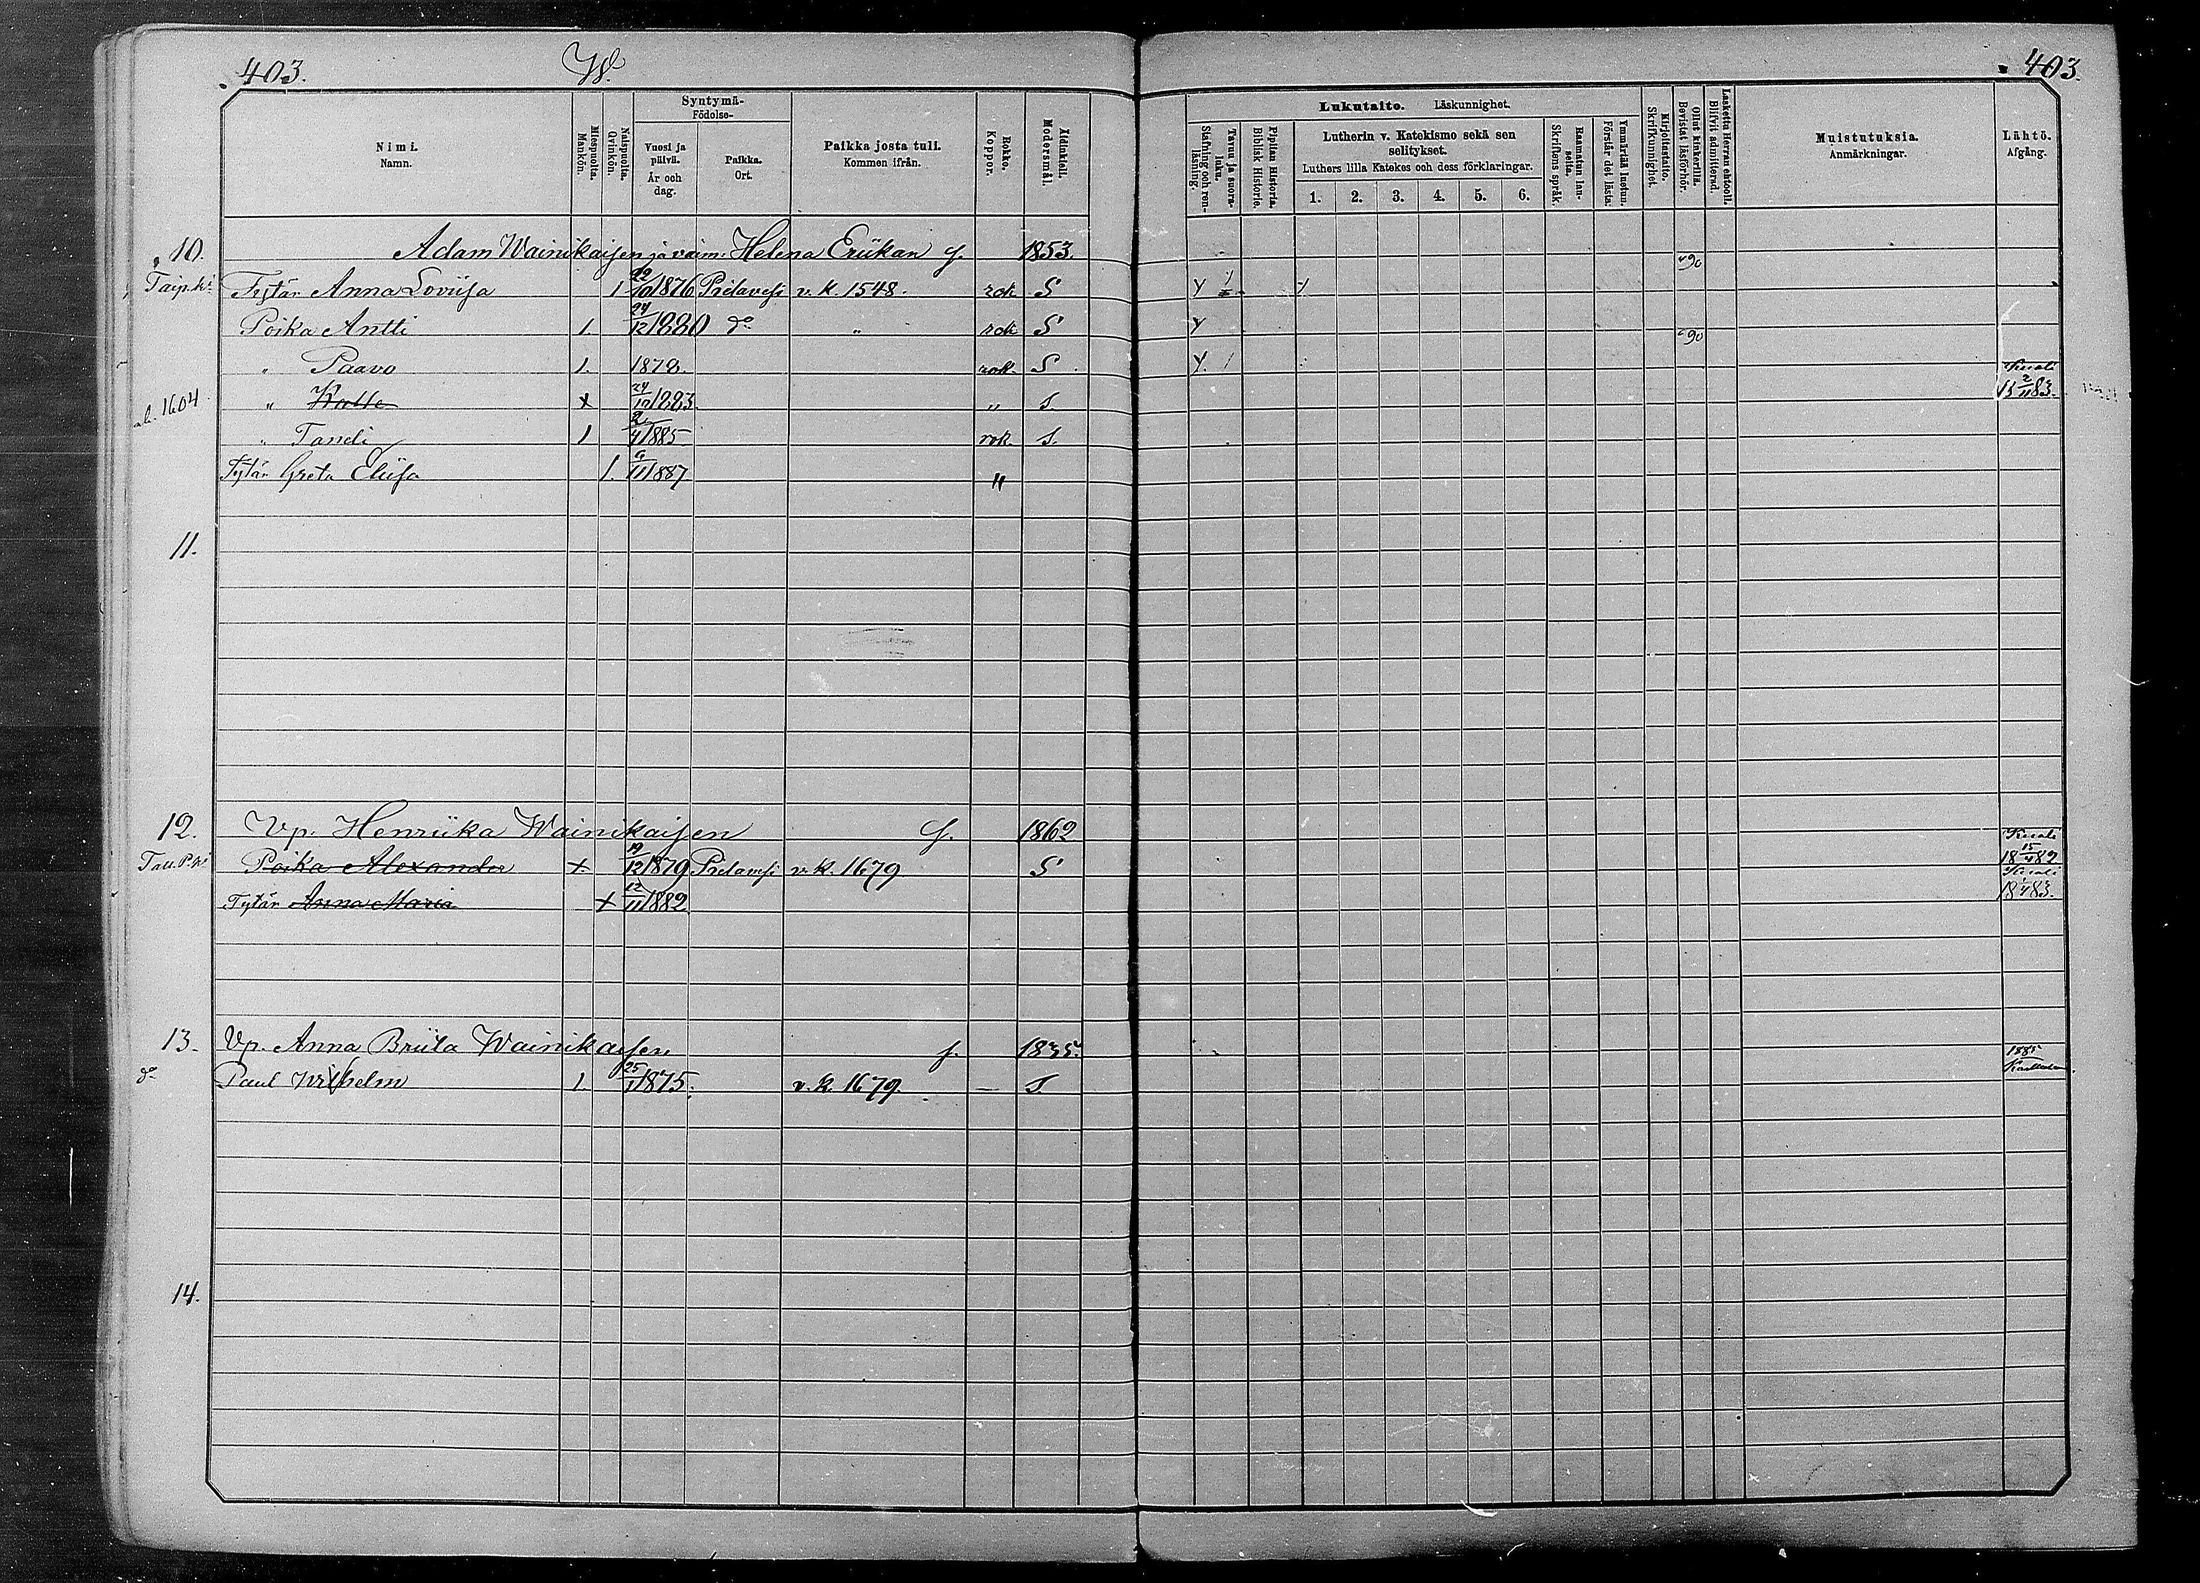 403. W. 403.
Nimi. Namn.
Miespuolta. Mankön.
Naispuolta. Qvinkön.
Syntymä- Födelse-
Vuosi ja päivä. År och dag.
Paikka. Ort.
Paikka josta tuli. Kommen ifrån.
Rokko. Koppor.
Äidinkieli. Modersmål.
Lukutaito. Läskunnighet.
Tavuu ja suora- luku. Stafning och ren- läsning.
Piplian Historia. Biblisk Historie.
Lutherin v. Katekismo sekä sen selitykset.
Luthers lilla Katekes och dess förklaringar.
1. 2. 3. 4. 5. 6.
Raamatun lau- seita. Skriftens språk.
Ymmärtää luetun. Förstår det lästa.
Kirjoitustaito. Skrifkunnighet.
Ollut kinkerillä. Bevistat läsförhör.
Laskettu Herran ehtooll. Blifvit admitterad.
Muistutuksia. Anmärkningar.
Lähtö. Afgång.
10. Adam Wainikaisen ja vaim: Helena Eriikan f. 1853. "90
Tytär Anna Loviisa 1 22/10 1876 Pielavesi v. k. 1548. rok S Y 1
Poika Antti 1. 24/12 1880 do " rok S Y "90
" Paavo 1. 1878. rok. S Y. 1
al. 1604 " Kalle x 24/12 1883. " S. Kuoli
" Taneli 1 2/4 1885 rok. S.
Tytär Greta Eliisa 1. 6/11 1887 "
11.
12. Vp. Henriika Wainikaisen f. 1862
Poika Alexander x. 19/12 1879 Pielavesi v. k. 1679 S Kuoli 18 15/4 82
Tytär Anna Maria x 12/11 1882 Kuoli
13. Vp. Anna Briita Wainikaisen f. 1835.
do Paul Wilhelm 1. 25/1 1875. v. k. 1679. — S. 1885
14.